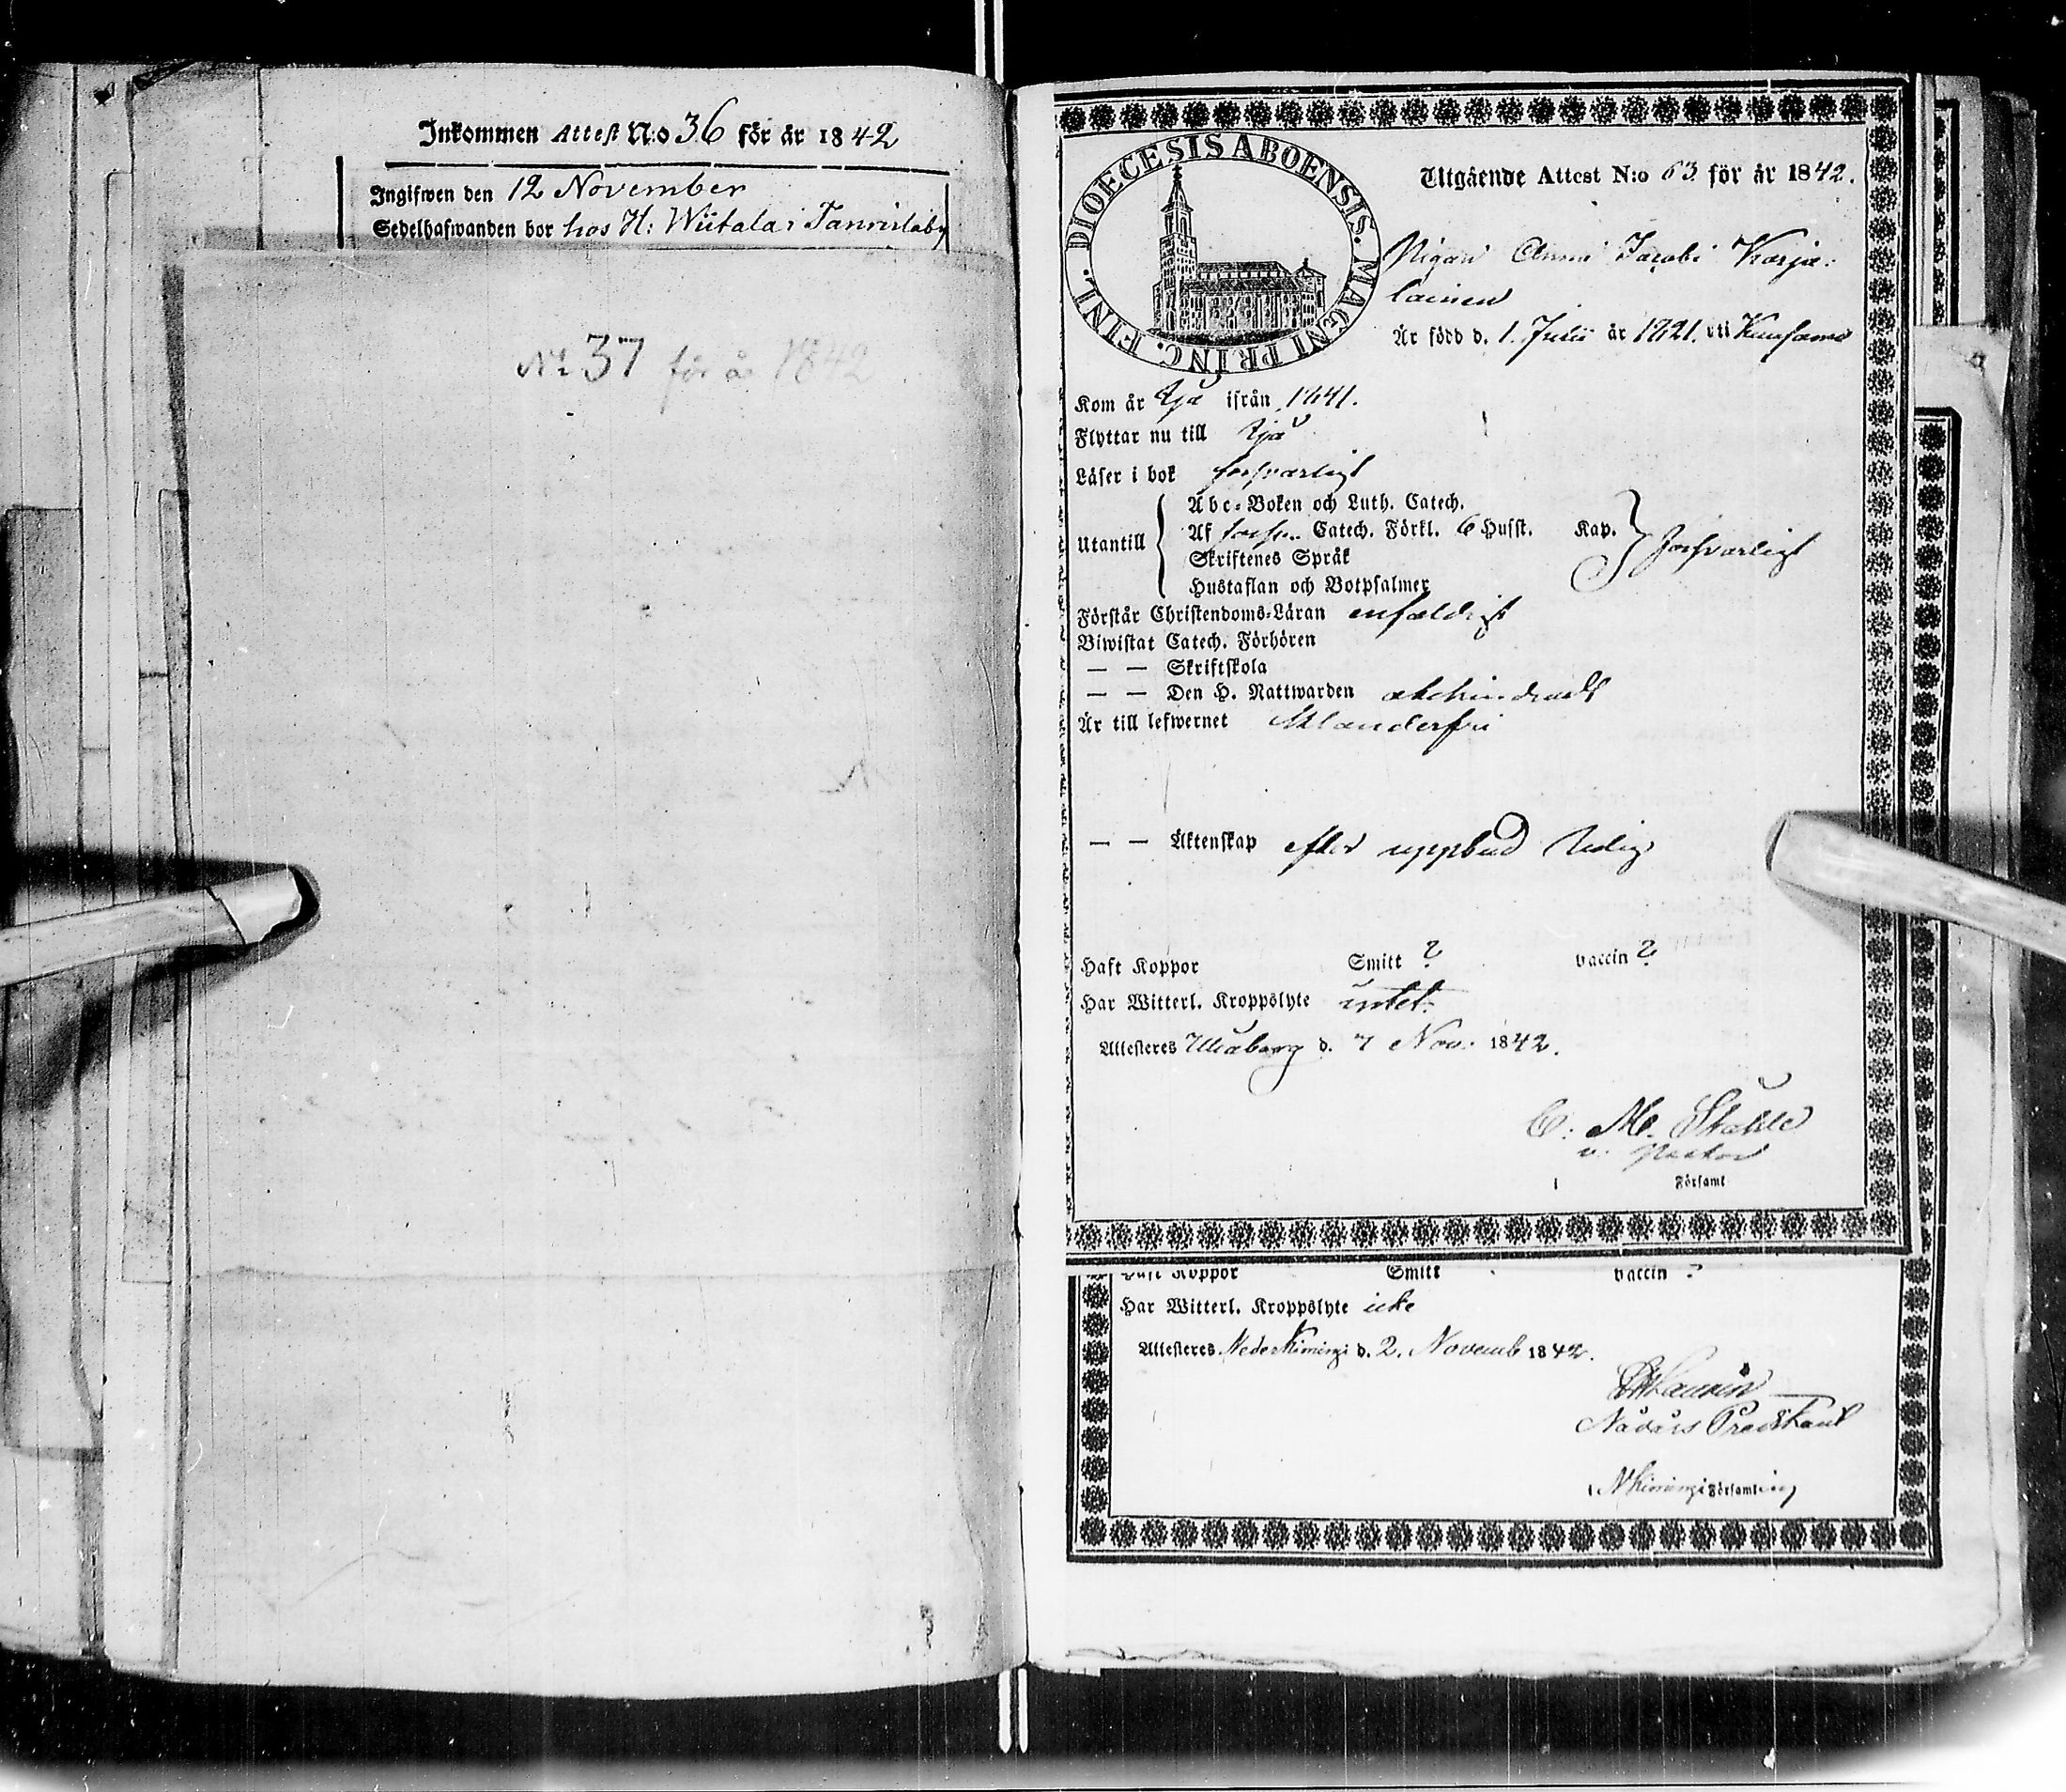 Inkommen Attest N:o 36 för år 1842
Ingifwen den 12 November
Sedelhafwanden bor hos H: Wiitala i
No 37 för år 1842
DIOECESIS ABOENSIS. MAGNI PRINC. FINL.
Utgående Attest N:o 63 för år 1842.
Pigan Anna Jacobi Karja:
lainen
Är född d. 1. Julii år 1821. uti Kuusamo
Kom år Ijå ifrån 1841.
Flyttar nu till Ijå
Läser i bok försvarligt
Utantill
Abc-Boken och Luth. Catech.
Af Catech. Förkl. 6 Husst. Kap.
försvarligt
Skriftenes Språk
Hustaflan och Botpsalmer
Förstår Christendoms-Läran enfaldigt
Biwistat Catech. Förhören
— — Skriftskola
— — Den H. Nattwarden
Är till lefwernet oklanderfri
— — Äktenskap efter uppbud ledig
Haft Koppor Smitt ? vaccin ?
Har Witterl. Kroppslyte intet.
Attesteras Uleåborg d. 7 Nov. 1842.
C: M. Ståhle
v. Pastor
i Församl
Haft Koppor Smitt vaccin ?
Har Witterl. Kroppslyte icke
Attesteras NederKiminge d. 2. Novemb 1842.
i NKiminge Församling